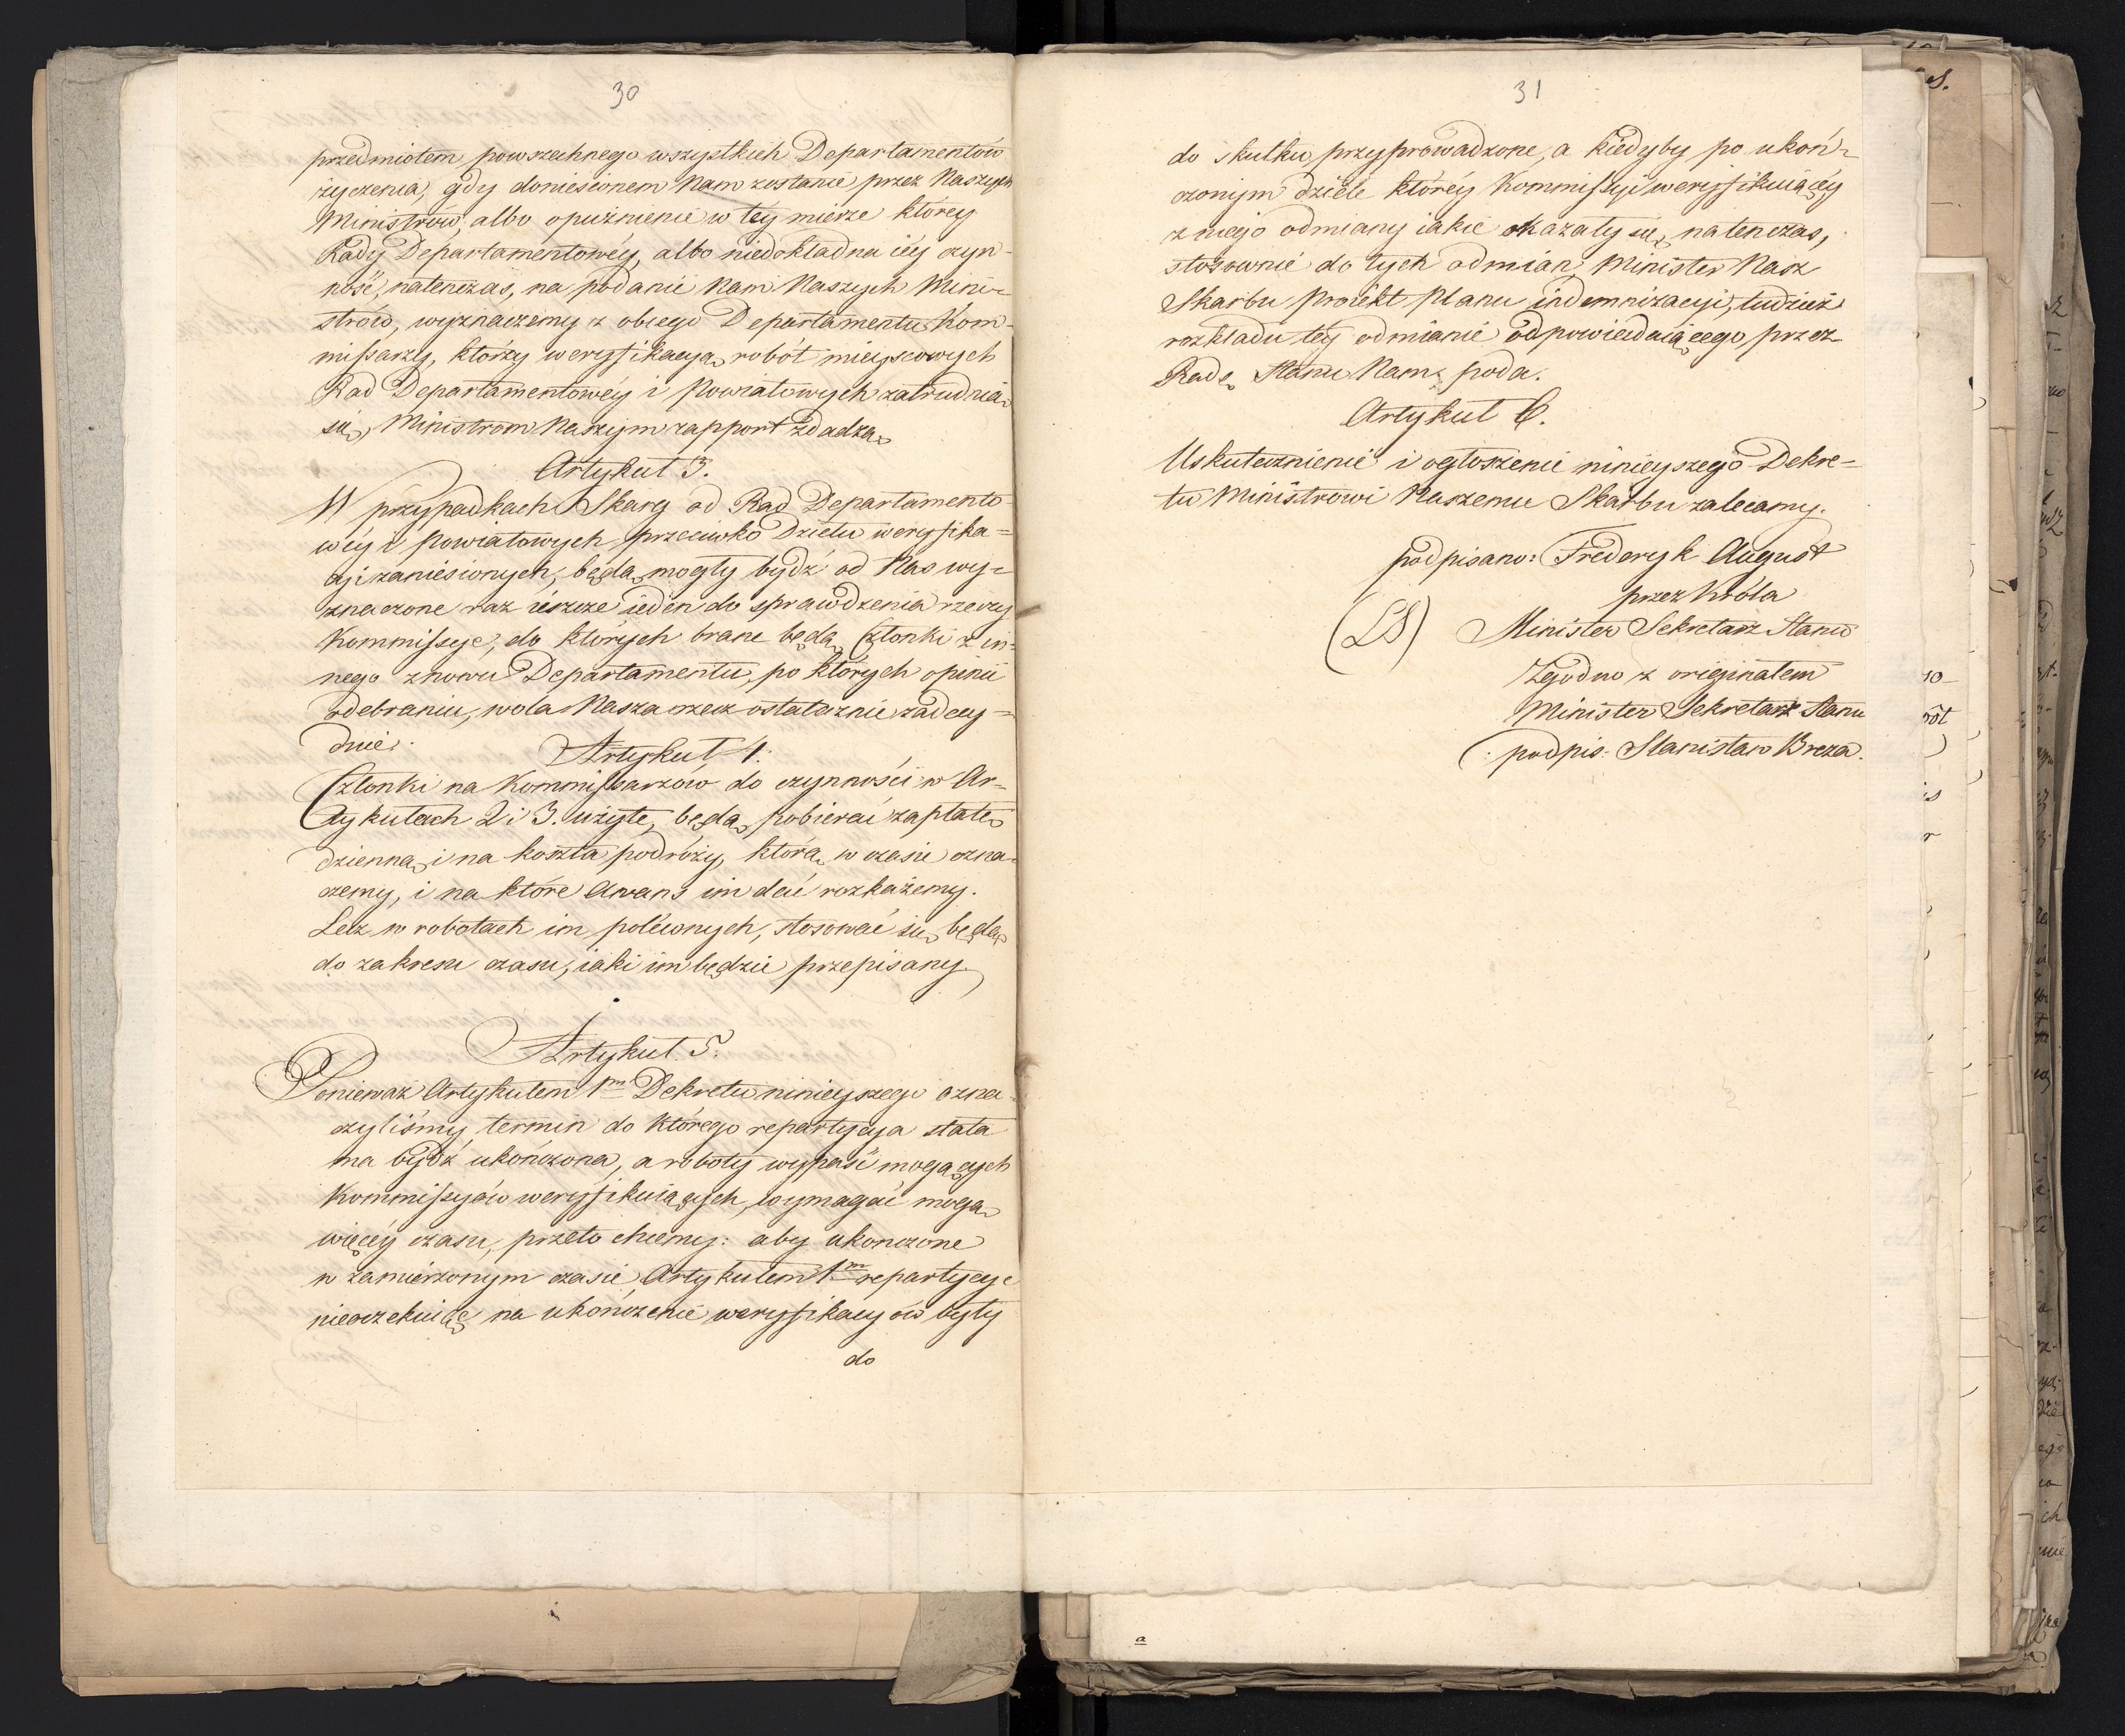 30
przedmiotem powszechnego wszystkich Departamentów
życzenia, gdy doniesionem Nam zostanie przez Naszych
Ministrów, albo opuźnienie w tey mierze którey
Rady Departamentowéy, albo niedokładna iéy czyn-
ność, natenczas, na podanie Nam Naszych Mini-
strów, wyznaczemy z obcego Departamentu Kom-
missarzy, którzy weryfikacyą robót mieyscowych
Rad Departamentowéy i Powiatowych zatrudnią
się, Ministrom Naszym rapport zdadzą
Artykuł 3.
W przypadkach Skarg od Rad Departamento-
wéy i Powiatowych przeciwko Dziełu weryfika-
cyi zaniesionych, będą mogły bydź od Nas wy-
znaczone raz ieszcze ieden do sprawdzenia rzeczy
Kommissye, do których brane będą Członki z in-
nego znowu Departamentu, po których opinii
odebraniu, wola Nasza rzecz ostatecznie zadecy-
duie.
Artykuł 4.
Członki na Kommissarzów do czynności w Ar-
tykułach 2 i 3. użyte, będą pobierać zapłatę
dzienną i na koszta podróży, którą w czasie ozna-
czemy, i na które Awans im dać rozkażemy.
Lecz w robotach im poleconych, stosować się będą
do zakresu czasu, iaki im będzie przepisany
Artykuł 5.
Ponieważ Artykułem 1m Dekretu ninieyszego ozna-
czyliśmy termin do którego repartycya stała
ma bydź ukończona, a roboty wypaść mogących
Kommissyów weryfikuiących, wymagać mogą
więcéy czasu, przeto chcemy: aby ukończone
w zamierzonym czasie Artykułem 1m repartycye
nieoczekuiąc na ukończenie weryfikacyów były
do
31
do skutku przyprowadzone, a kiedyby po ukoń-
czonym dziele któréy Kommissyi weryfikuiącéy
z niego odmiany iakie okazały się, natenczas,
stosownie do tych odmian Minister Nasz
Skarbu Proiekt Planu indemnizacyi, tudzież
rozkładu tey odmianie odpowiadaiącego przez
Radę Stanu Nam poda.
Artykuł 6.
Uskutecznienie i ogłoszenie ninieyszego Dekre-
tu Ministrowi Naszemu Skarbu zalecamy.
podpisano: Frederyk August
przez Króla
(LS) Minister Sekretarz Stanu
Zgodno z orieginałem
Minister Sekretarz Stanu
(: podpis: Stanisław Breza.
a